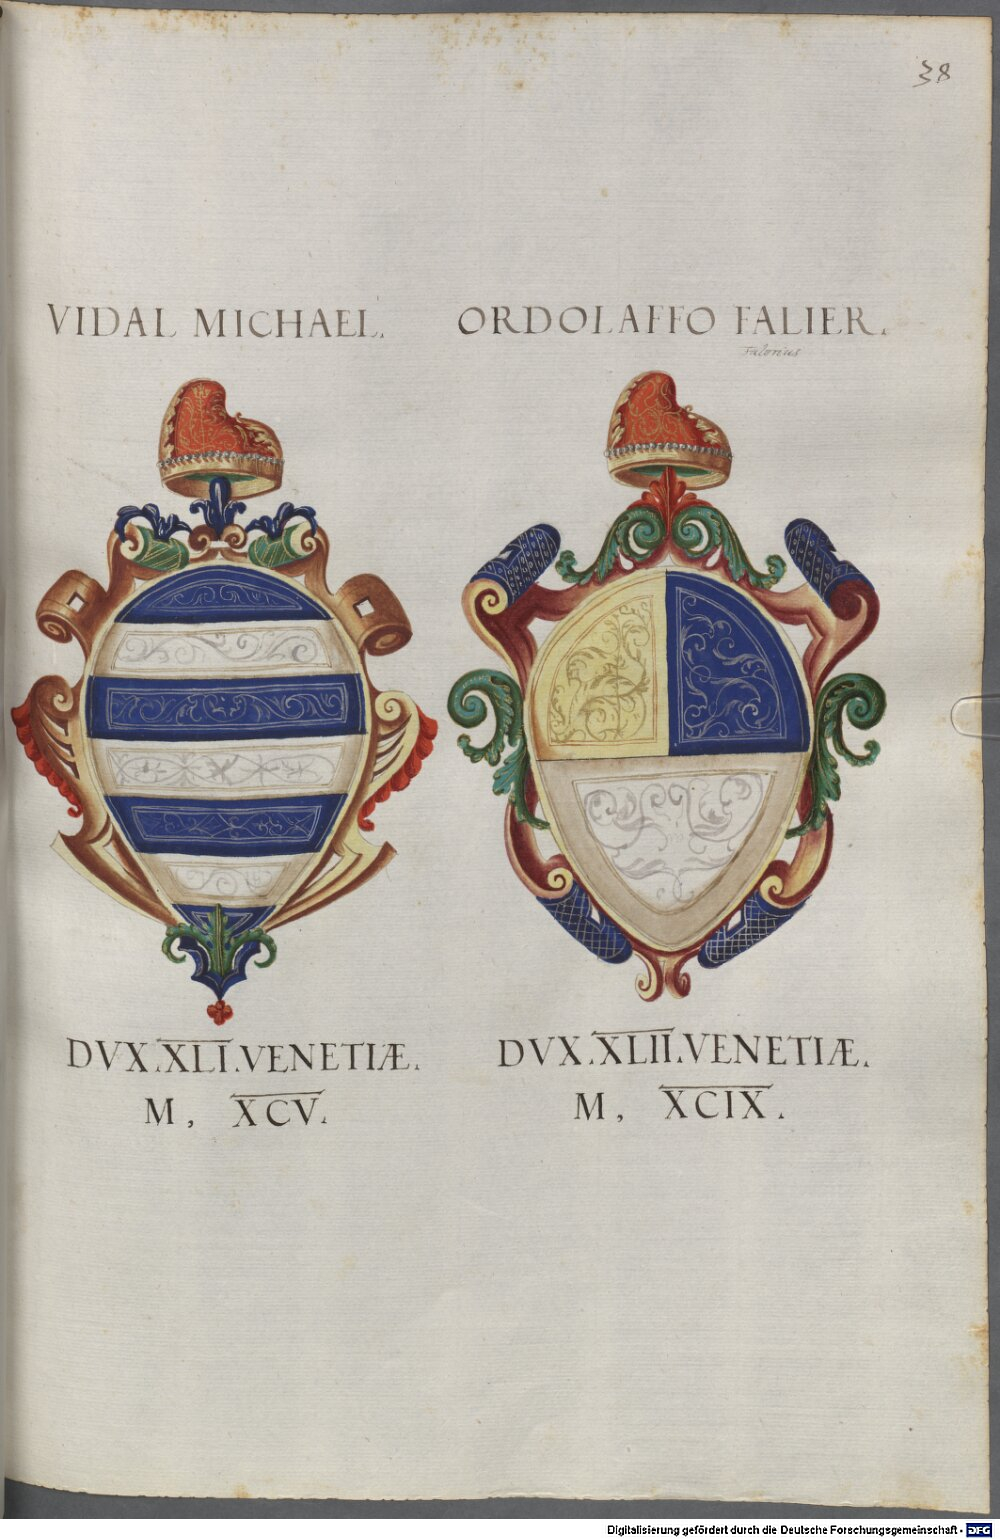 38
VIDAL MICHAEL.
ORDOLAFFO FALIER.
DVX.XLI.VENETIÆ.
M, XCV.
DVX.XLII.VENETIÆ.
M, XCIX.
Digitalisierung gefördert durch die Deutsche Forschungsgemeinschaft - DFG